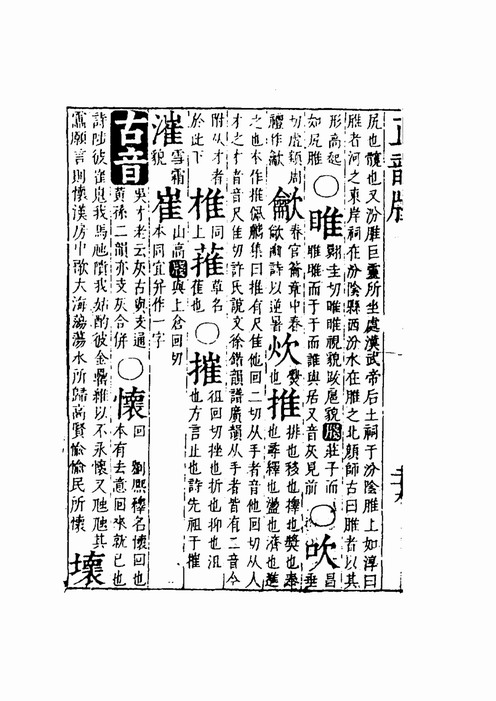 尻也臗也又汾脽巨靈所坐處漢武帝后土祠于汾陰脽上如淳曰
脽者河之東岸祠在汾陰縣西汾水在脽之北顏師古曰脽者以其
形高起如尻脽○睢翾圭切睢睢視貌跋扈貌牋莊子而睢睢而于于而誰與居又音灰見前○吹昌垂
切虛類周禮作龡龡春官籥章中春龡豳詩以逆暑炊爨也推排也移也擇也奬也奉也尋繹也盪也濟也進
之也本作推佩觿集曰推有尺隹他回二切从手者音他回切从人
才之才者音尺隹切許氏說文徐鍇韻譜廣韻从手者皆有二音今
附从才者於此下椎同上蓷草名萑也○摧徂回切挫也折也抑也沮也方言止也詩先祖于摧
漼雪霜貌崔山高牋與上倉回切本同宜并作一字
古音吳才老云灰古與支通黃孫二韻亦支灰合併○懷回 劉熙釋名懷回也本有去意回來就已也
詩陟彼崔嵬我馬虺隤我姑酌彼金罍維以不永懷又虺虺其
靁願言則懷漢房中歌大海蕩蕩水所歸高賢愉愉民所懷
壞